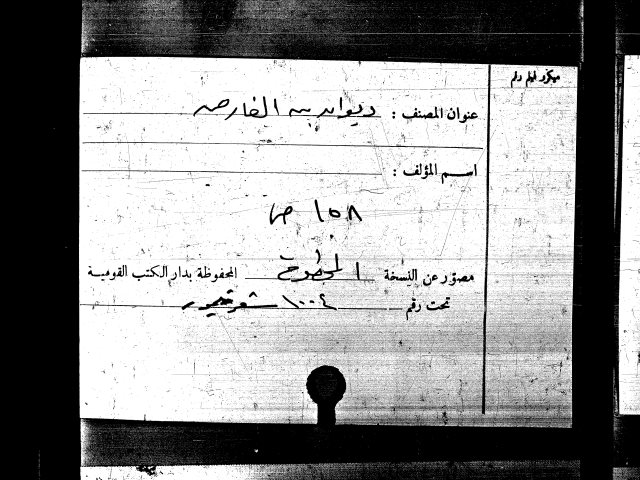 ميكروفيلم رقم
عنوان المصنف : ديوان بن الفارض
اسم المؤلف :
١٥٨ ص
مصوّر عن النسخة المخطوطة المحفوظة بدار الكتب القومية
تحت رقم ١٠٠٤ شعر تيمور